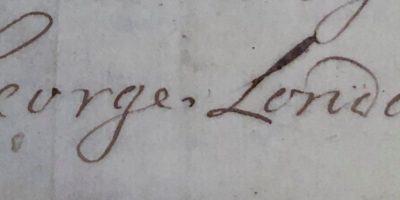 eorge. Londo